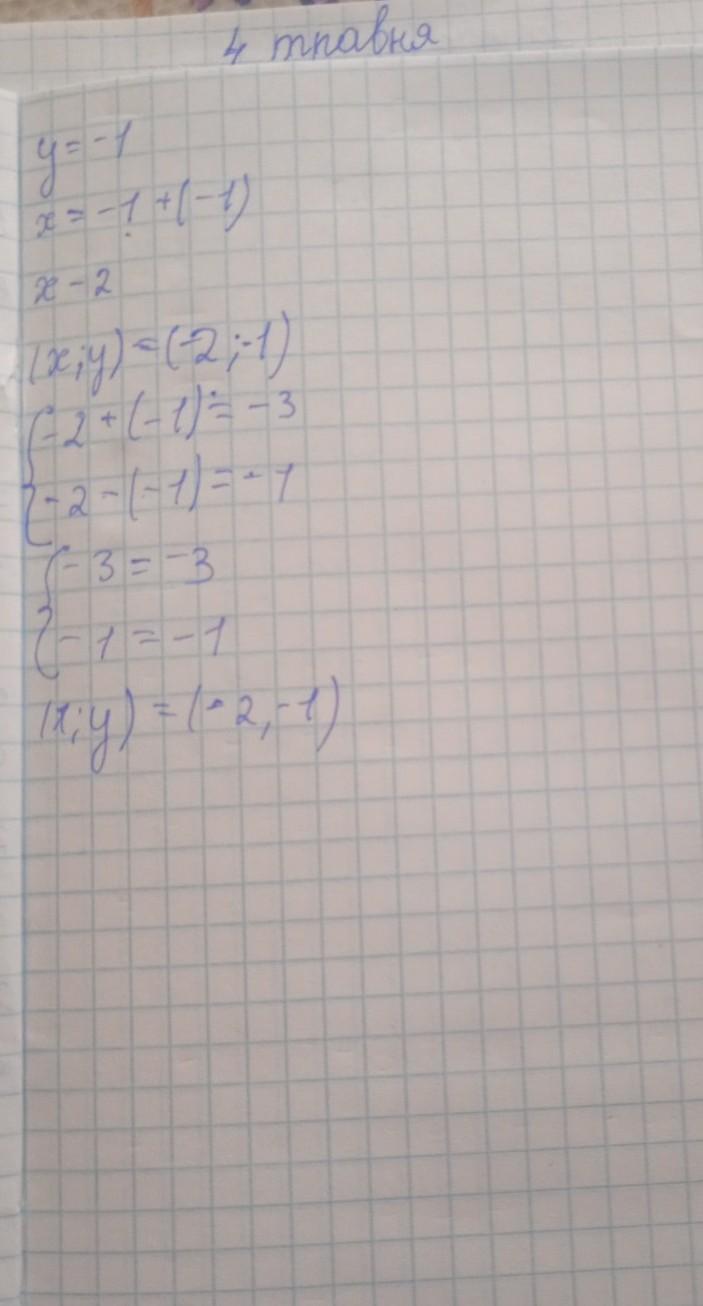 4 травня
y = -1
x = -1 + (-1)
x - 2
(x; y) = (-2; -1)
{-2 + (-1) = -3
{-2 - (-1) = -1
{-3 = -3
{-1 = -1
(x; y) = (-2, -1)